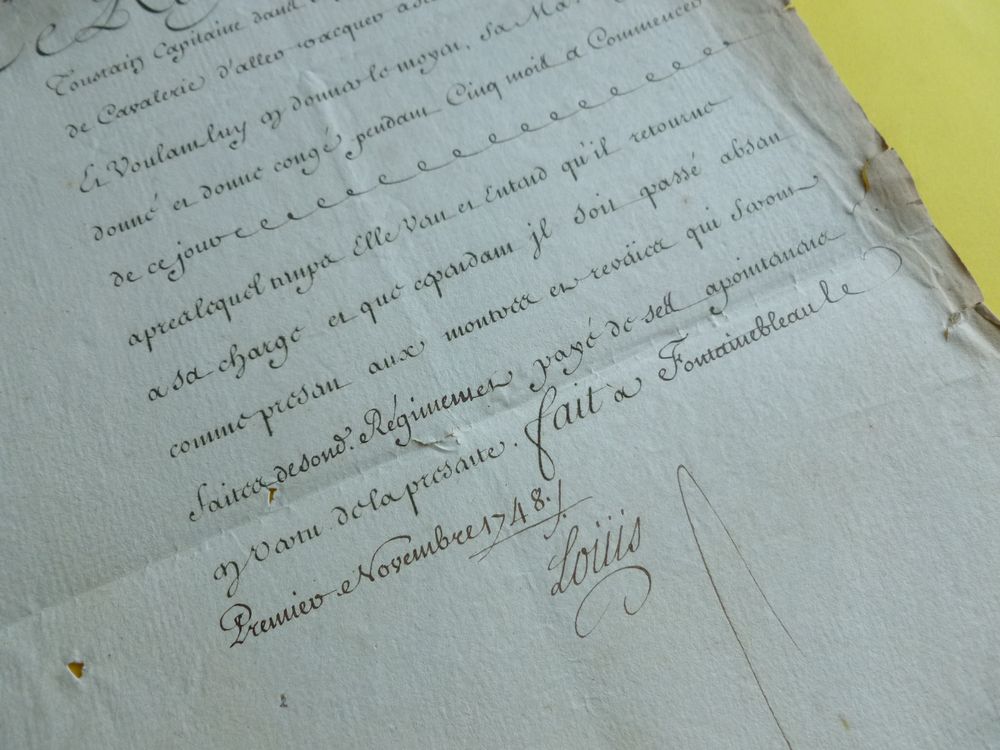 Toustain Capitaine dans
de Cavalerie d'alleo
Et Voulant luy y donner le moyen, Sa Ma
donné et donne congé pendant Cinq mois a Commencer
de ce jour
apres lequel temps Elle Veut et Entend qu'il retourne
a sa charge et que cependant jl soit passé absent
comme present aux montres et reveües qui Seront
faites de sond. Régiment et payé de ses apointemens
en Vertu de la presente. fait a Fontainebleau le
Premier Novembre 1748./.
Loüis
2